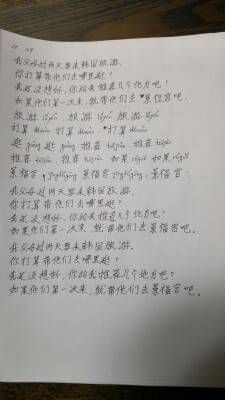 11 29
我父母过两天要来韩国旅游。
你打算带他们去哪里逛?
我还没想好,你给我推荐几个地方吧?
如果他们第一次来,就带他们去景福宫吧。
旅游 lǚyóu 旅游 lǚyóu 旅游 lǚyóu
打算 dǎsuàn 打算 dǎsuàn 打算 dǎsuàn
逛 guàng 逛 guàng 推荐 tuījiàn 推荐
推荐 tuījiàn 推荐 tuījiàn 如果 rúguǒ 如果 rúguǒ
景福宫 jǐngfúgōng 景福宫 jǐngfúgōng 景福宫
我父母过两天要来韩国旅游.
你打算带他们去哪里逛?
我还没想好,你给我推荐几个地方吧?
如果他们第一次来 就带他们去景福宫吧。
我父母过两天要来韩国旅游.
你打算带他们去哪里逛?
我还没想好,你给我推荐几个地方吧?
如果他们第一次来,就带他们去景福宫吧。